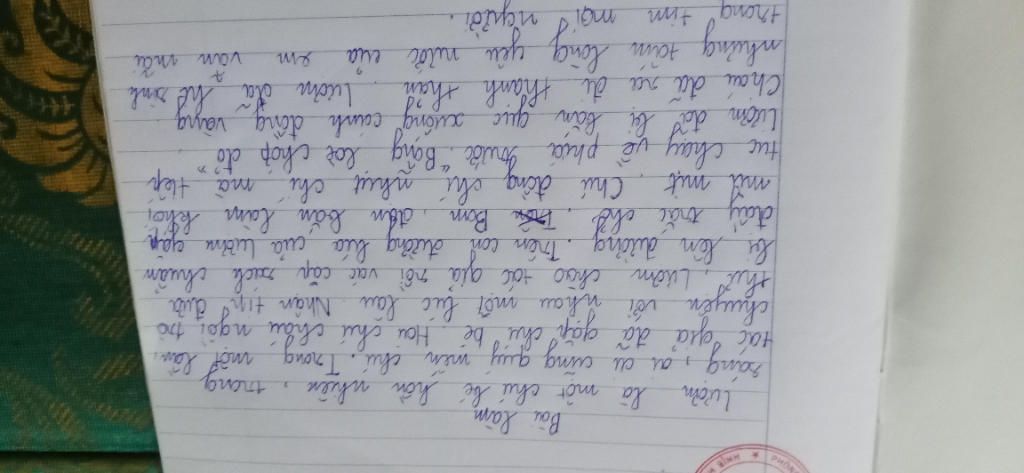 Bài làm
Lượm là một chú bé hồn nhiên, trong
sáng, ai cũng quý mến chú. Trong một lần,
tác giả đã gặp chú bé. Hai chú cháu ngồi trò
chuyện với nhau một lúc lâu. Nhận tin đưa
thư, Lượm chào tác giả rồi vác cặp sách chuẩn
bị lên đường. Trên con đường kia của Lượm gặp
đầy trắc chở. Bom đạn bắn làm khói
mù mịt. Chú đồng chí nhút chí mà tiếp
tục chạy về phía trước. "Bỗng loè chớp đỏ"
Lượm đã bị bắn gục xuống cánh đồng vàng
Cháu đã ra đi thanh thản. Lượm đã hi sinh
nhưng tấm lòng yêu nước của em vẫn mãi
trong tim mọi người.
BÌNH ★ PHÒNG